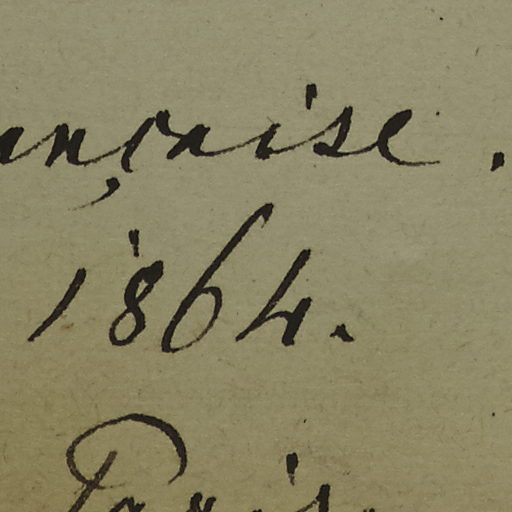 ançaise.
1864.
Paris